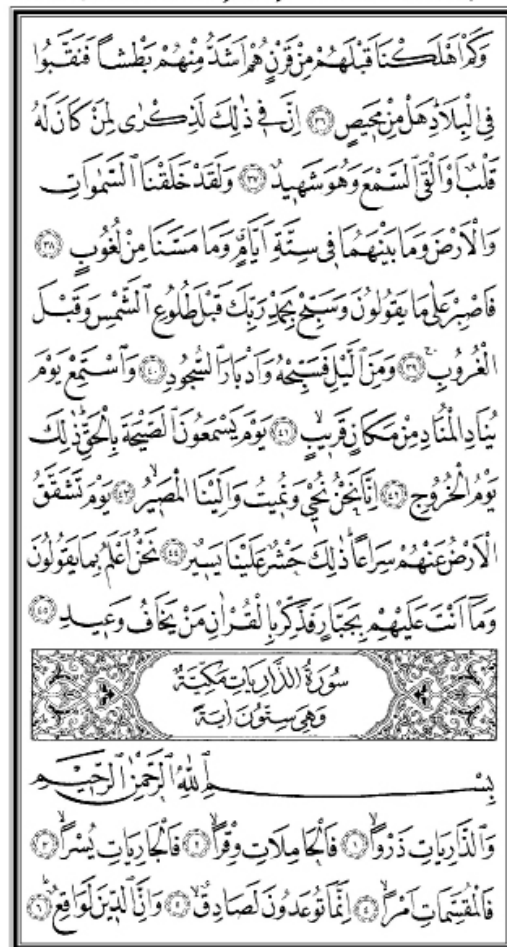 وَكَمْ اَهْلَكْنَا قَبْلَهُمْ مِنْ قَرْنٍ هُمْ اَشَدُّ مِنْهُمْ بَطْشاً فَنَقَّبُوا
فِي الْبِلَادِ هَلْ مِنْ مَحٖيصٍ ﴿٣٦﴾ اِنَّ فٖي ذٰلِكَ لَذِكْرٰى لِمَنْ كَانَ لَهُ
قَلْبٌ اَوْ اَلْقَى السَّمْعَ وَهُوَ شَهٖيدٌ ﴿٣٧﴾ وَلَقَدْ خَلَقْنَا السَّمٰوَاتِ
وَالْاَرْضَ وَمَا بَيْنَهُمَا فٖي سِتَّةِ اَيَّامٍۗ وَمَا مَسَّنَا مِنْ لُغُوبٍ ﴿٣٨﴾
فَاصْبِرْ عَلٰى مَا يَقُولُونَ وَسَبِّحْ بِحَمْدِ رَبِّكَ قَبْلَ طُلُوعِ الشَّمْسِ وَقَبْلَ
الْغُرُوبِۚ ﴿٣٩﴾ وَمِنَ الَّيْلِ فَسَبِّحْهُ وَاَدْبَارَ السُّجُودِ ﴿٤٠﴾ وَاسْتَمِعْ يَوْمَ
يُنَادِ الْمُنَادِ مِنْ مَكَانٍ قَرٖيبٍۙ ﴿٤١﴾ يَوْمَ يَسْمَعُونَ الصَّيْحَةَ بِالْحَقِّۜ ذٰلِكَ
يَوْمُ الْخُرُوجِ ﴿٤٢﴾ اِنَّا نَحْنُ نُحْيٖ وَنُمٖيتُ وَاِلَيْنَا الْمَصٖيرُۙ ﴿٤٣﴾ يَوْمَ تَشَقَّقُ
الْاَرْضُ عَنْهُمْ سِرَاعاًۜ ذٰلِكَ حَشْرٌ عَلَيْنَا يَسٖيرٌ ﴿٤٤﴾ نَحْنُ اَعْلَمُ بِمَا يَقُولُونَ
وَمَٓا اَنْتَ عَلَيْهِمْ بِجَبَّارٍ فَذَكِّرْ بِالْقُرْاٰنِ مَنْ يَخَافُ وَعٖيدِ ﴿٤٥﴾
سُورَةُ الذَّارِيَاتِ مَكِّيَّةٌ
وَهِيَ سِتُّونَ اٰيَةً
بِسْمِ اللّٰهِ الرَّحْمٰنِ الرَّحٖيمِ
وَالذَّارِيَاتِ ذَرْواًۙ ﴿١﴾ فَالْحَامِلَاتِ وِقْراًۙ ﴿٢﴾ فَالْجَارِيَاتِ يُسْراًۙ ﴿٣﴾
فَالْمُقَسِّمَاتِ اَمْراًۙ ﴿٤﴾ اِنَّمَا تُوعَدُونَ لَصَادِقٌۙ ﴿٥﴾ وَاِنَّ الدّٖينَ لَوَاقِعٌۜ ﴿٦﴾